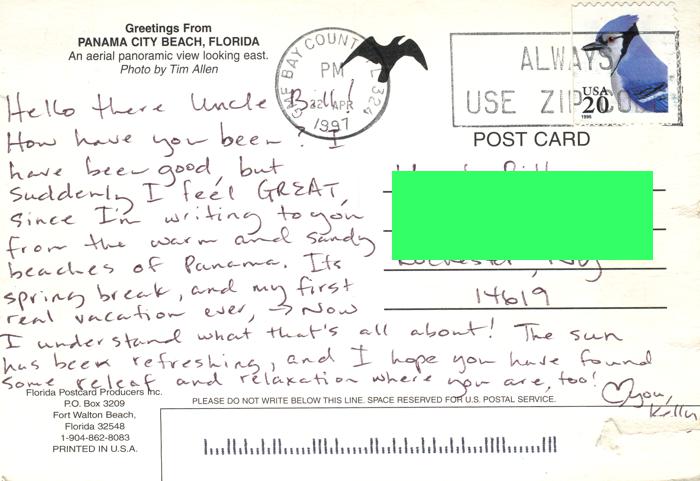 Greetings From
PANAMA CITY BEACH, FLORIDA
An aerial panoramic view looking east.
Photo by Tim Allen
GMF BAY COUNTY FL 324
PM
22 APR
1997
ALWAYS
USE ZIP CODE
USA
20
1996
POST CARD
Hello there Uncle Bill!
How have you been? I
have been good, but
suddenly I feel GREAT,
since I'm writing to you
from the warm and sandy
beaches of Panama. Its
spring break, and my first
real vacation ever, → Now
I understand what that's all about! The sun
has been refreshing, and I hope you have found
some releaf and relaxation where you are, too!
♡ you,
Kelly
Rochester, NY
14619
Florida Postcard Producers Inc.
P.O. Box 3209
Fort Walton Beach,
Florida 32548
1-904-862-8083
PRINTED IN U.S.A.
PLEASE DO NOT WRITE BELOW THIS LINE. SPACE RESERVED FOR U.S. POSTAL SERVICE.